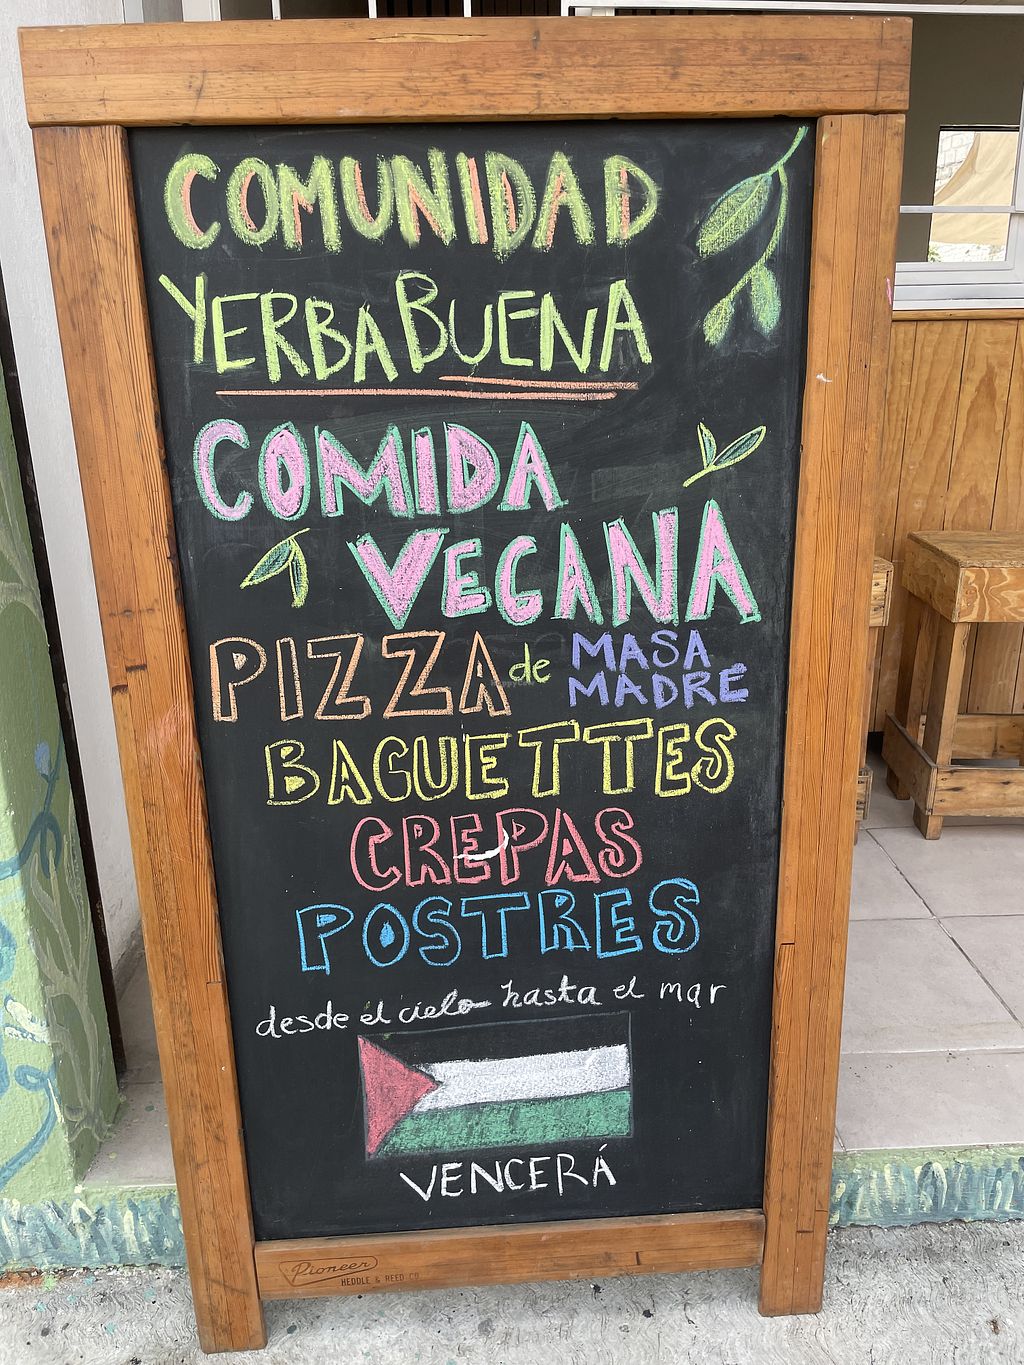 COMUNIDAD
YERBA BUENA
COMIDA
VEGANA
PIZZA de MASA MADRE
BAGUETTES
CREPAS
POSTRES
desde el cielo hasta el mar
VENCERÁ
Pioneer
HEDDLE & REED CO.